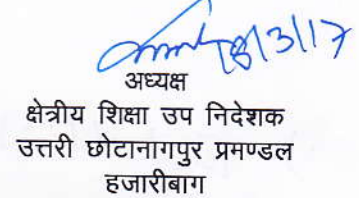 18/3/17
अध्यक्ष
क्षेत्रीय शिक्षा उप निदेशक
उत्तरी छोटानागपुर प्रमण्डल
हजारीबाग